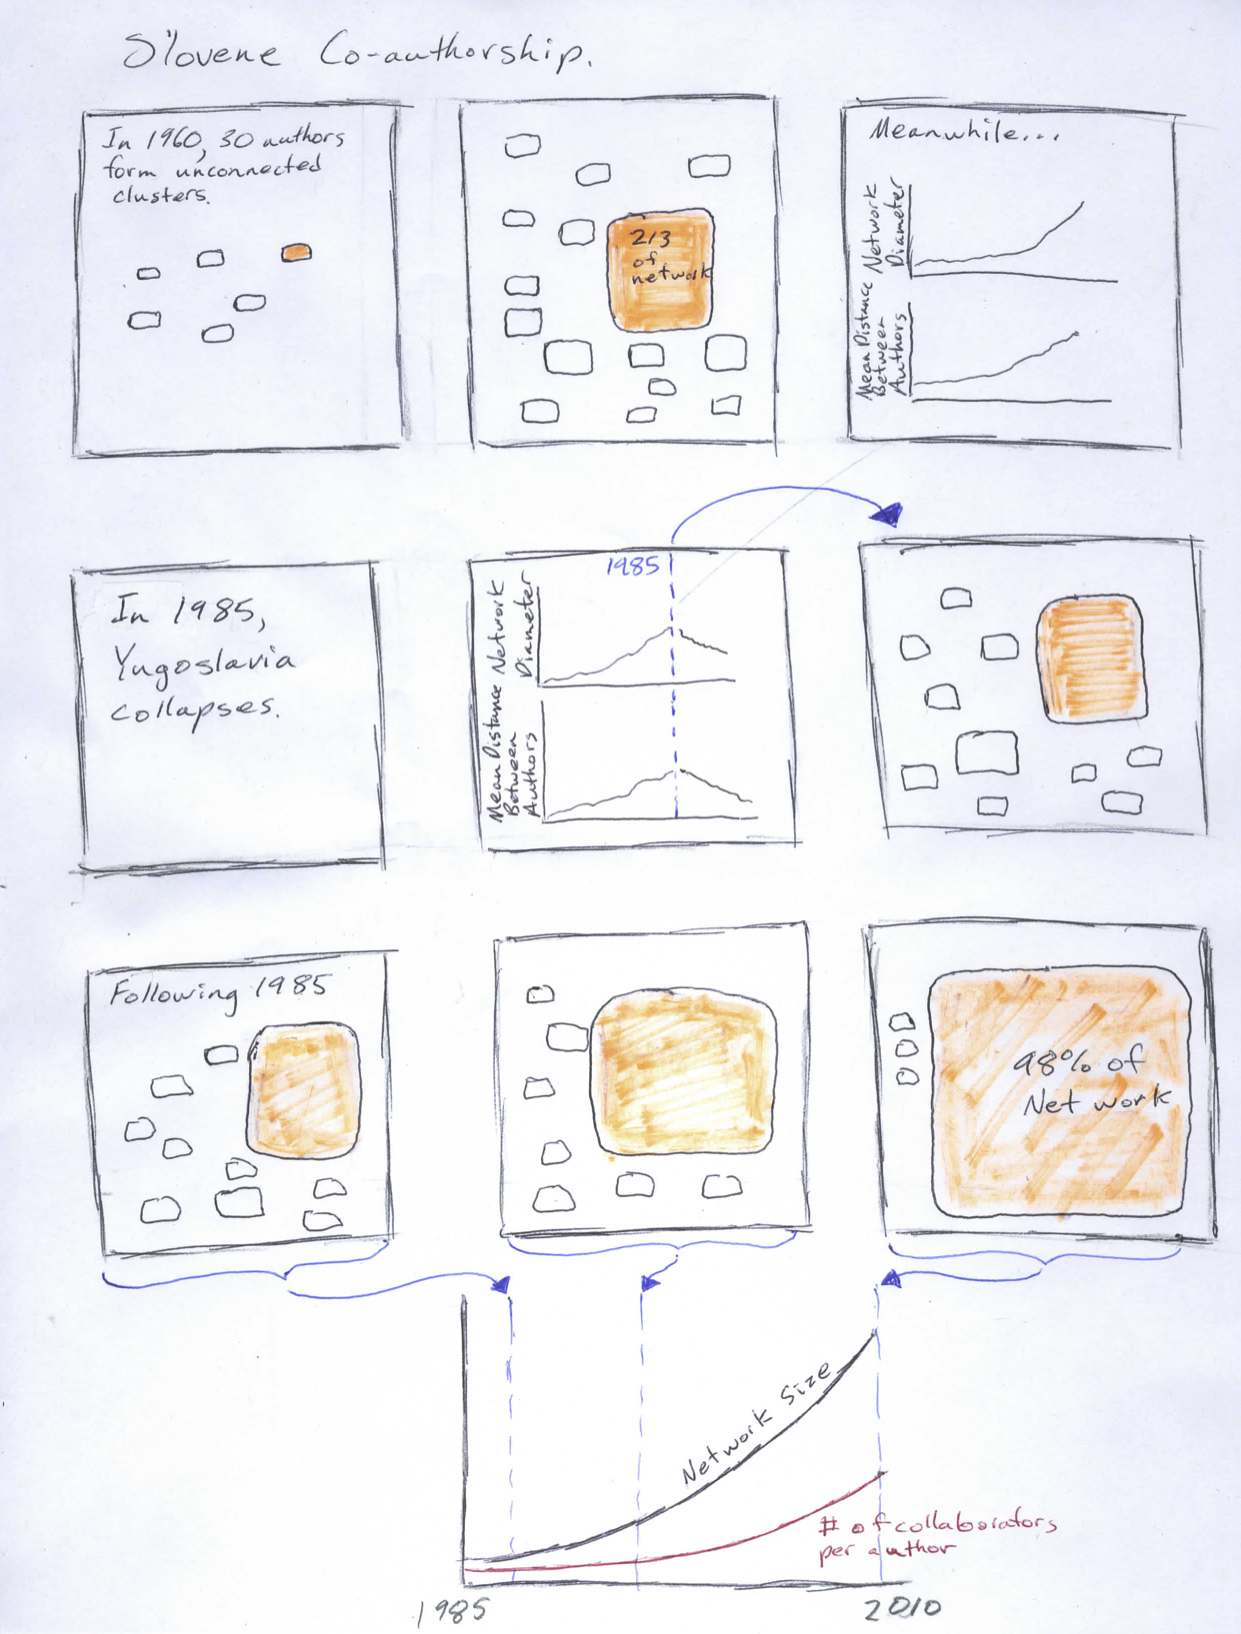 Slovene Co-authorship.
In 1960, 30 authors
form unconnected
clusters.
2/3
of
network
Meanwhile...
Network
Diameter
Mean Distance
Between
Authors
In 1985,
Yugoslavia
collapses.
1985
Network
Diameter
Mean Distance
Between
Authors
Following 1985
98% of
Network
Network Size
# of collaborators
per author
1985
2010